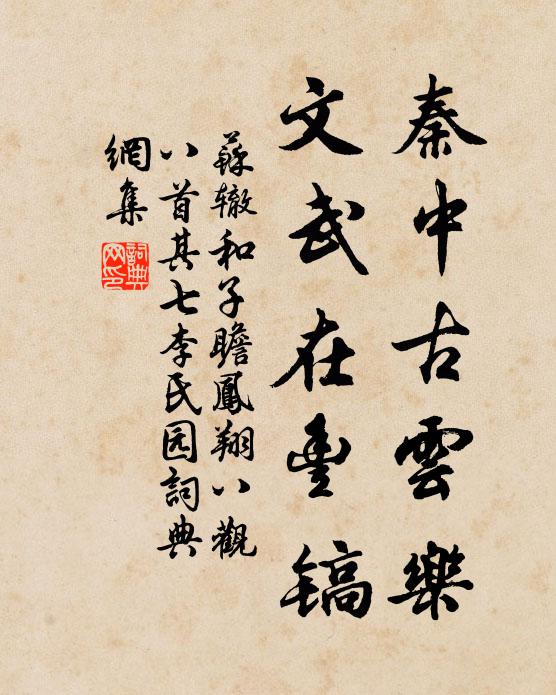 秦中古雲樂
文武在豐镐
蘇辙和子瞻鳳翔八觀
八首其七李氏园詞典
網集
詞典
网印